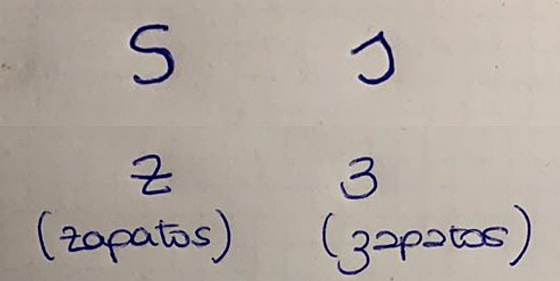 S s
z 3
(zapatos) (3apatos)